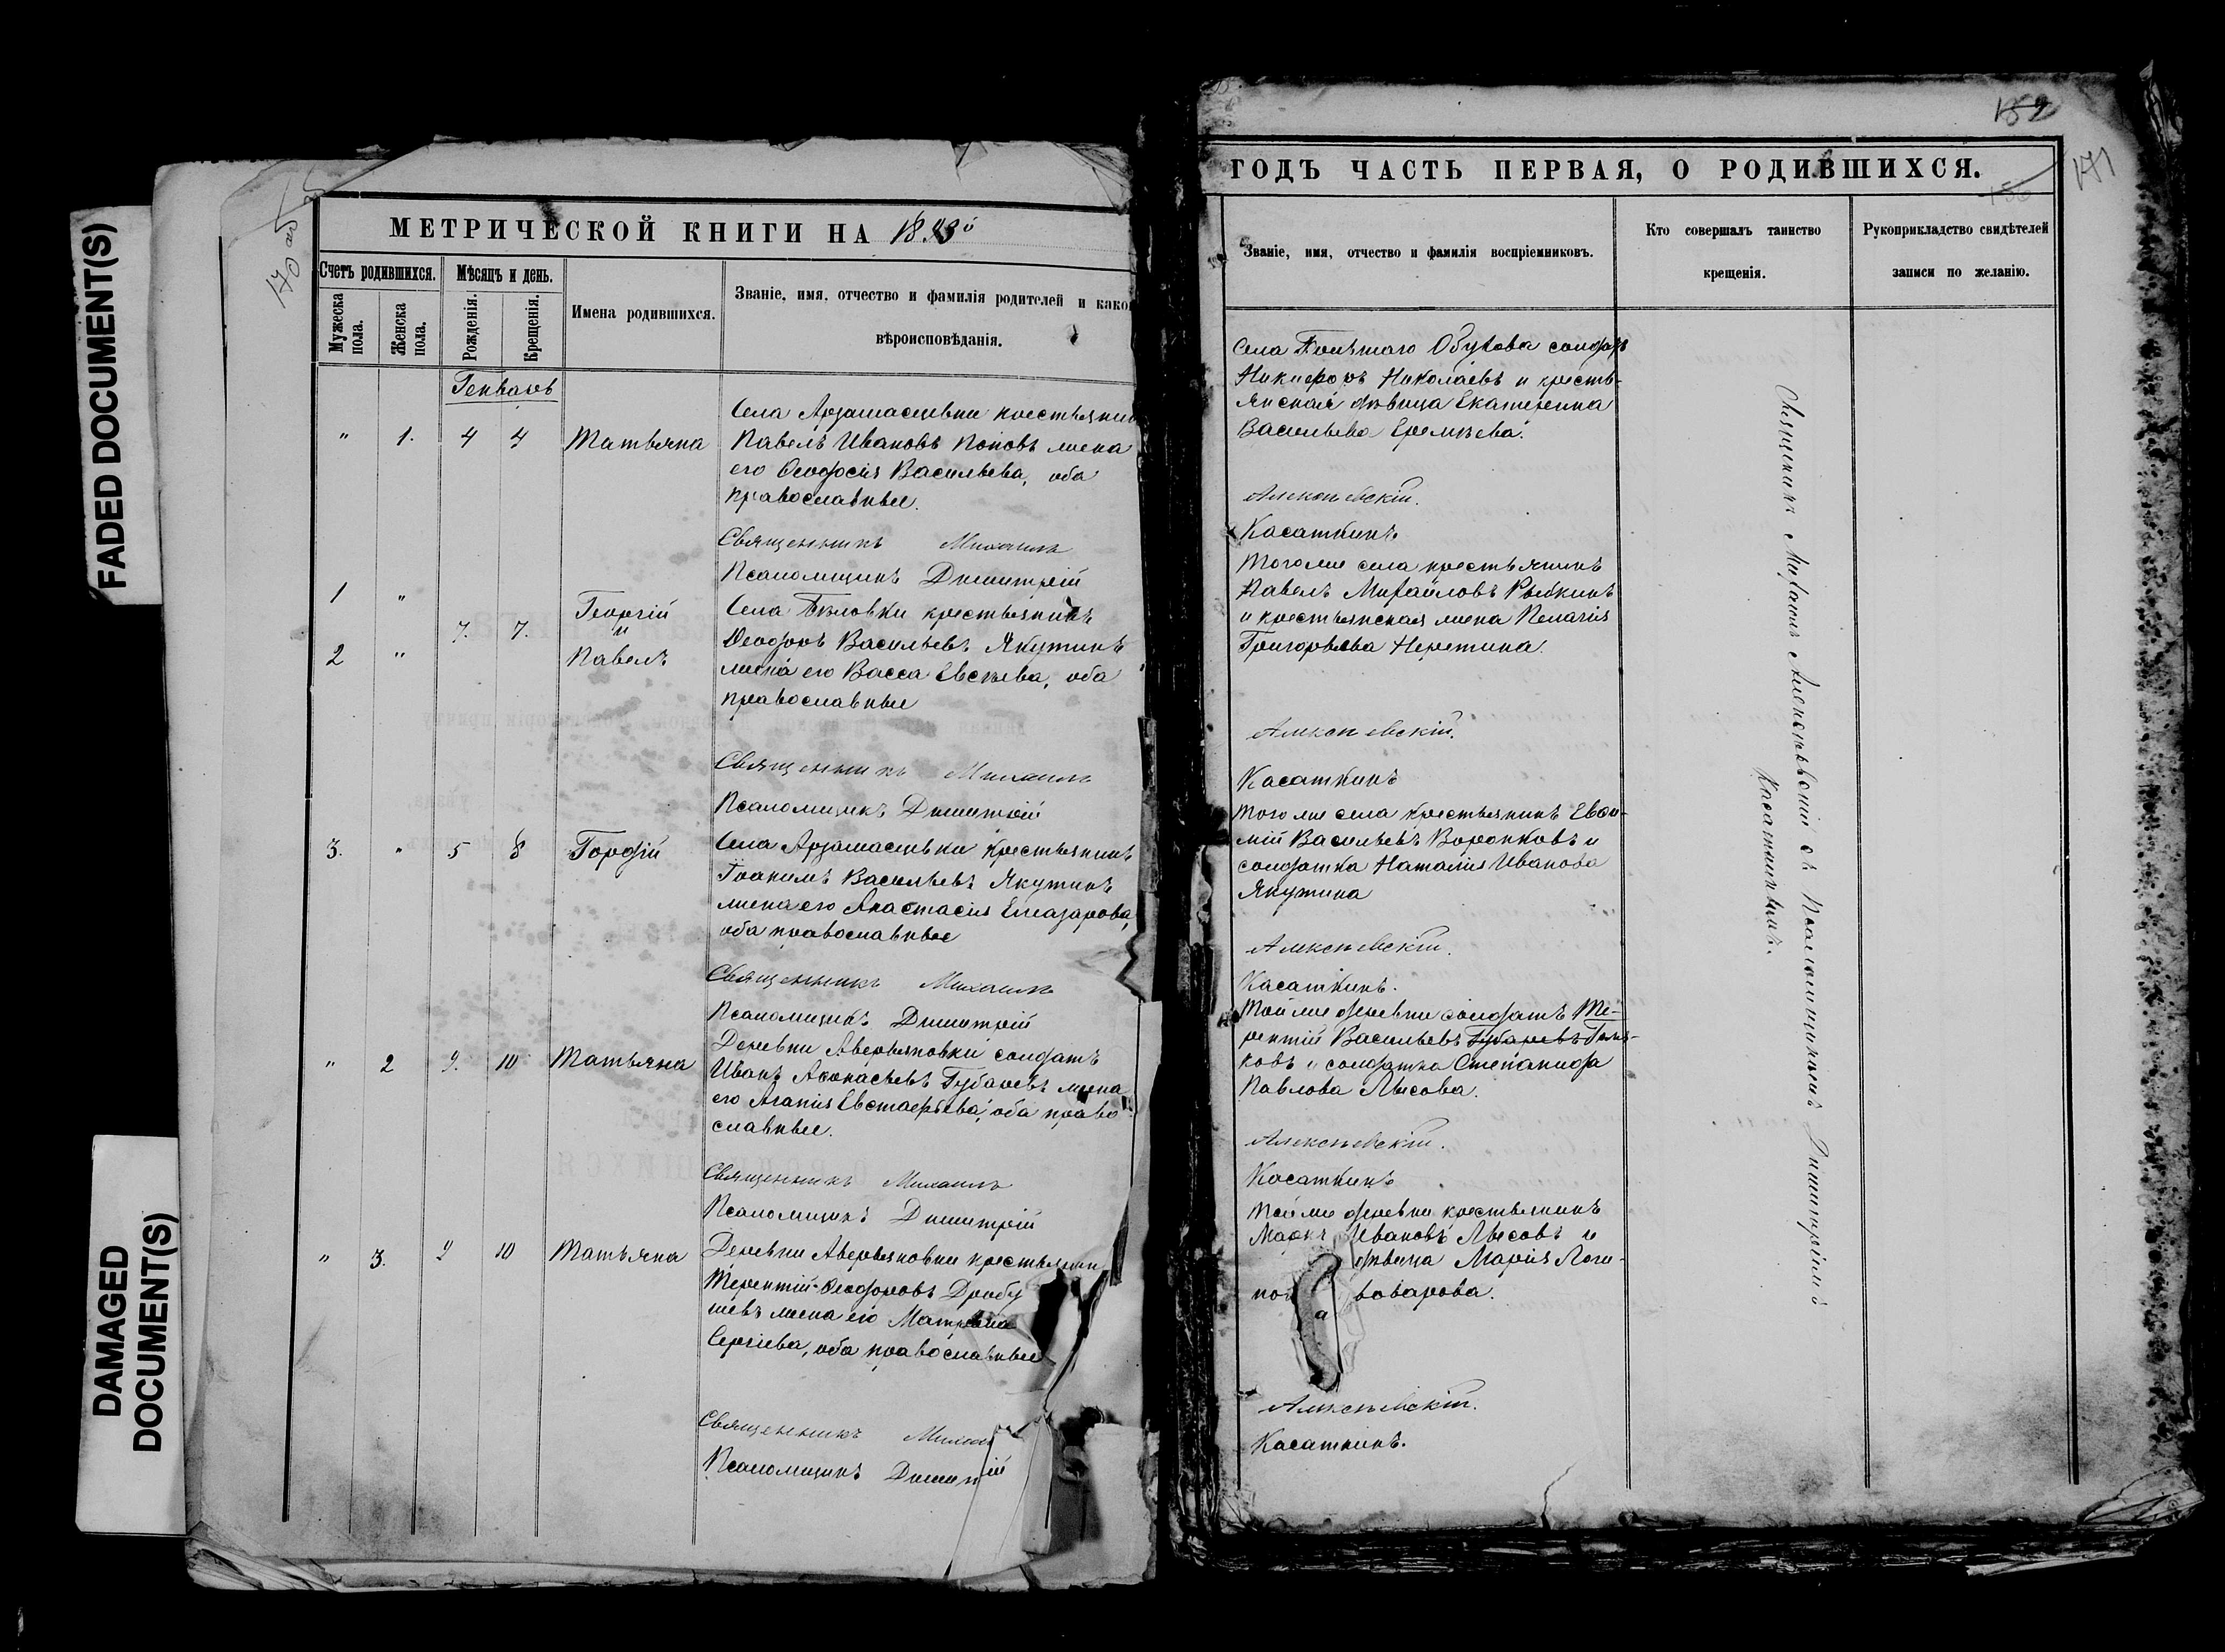 FADED DOCUMENT(S)
DAMAGED
DOCUMENT(S)
170 об
МЕТРИЧЕСКОЙ КНИГИ НА 1893й
Счетъ родившихся.
Мѣсяцъ и день.
Мужеска пола.
Женска пола.
Рожденія.
Крещенія.
Имена родившихся.
Званіе, имя, отчество и фамилія родителей и како
вѣроисповѣданія.
Генварь
" 1. 4 4 Татьяна
Села Арзамасцевки крестьянин
Павелъ Ивановъ Поповъ жена
его Ѳеодосія Васильева, оба
православные.
Священникъ Михаилъ
Псаломщикъ Димитрій
1 "
2 "
7. 7.
Георгій
и
Павелъ
Села
крестьянинъ
Ѳеодоръ Васильевъ Якутинъ
жена его Васса Евсѣева, оба
православные
Священникъ Михаилъ
Псаломщикъ Димитрій
3. " 5 8 Гордій
Села Арзамасцевки крестьянинъ
Іоакимъ Васильевъ Якутинъ
жена его Анастасія Елеазарова,
оба православные
Священникъ Михаилъ
Псаломщикъ Димитрій
" 2 9. 10 Татьяна
Деревни Аверьяновки солдатъ
Иванъ Аѳонасьевъ Губаревъ жена
его Агапія Евстафьева, оба право
славные.
Священникъ Михаилъ
Псаломщикъ Димитрій
" 3. 9 10 Татьяна
Деревни Аверьяновки крестьянин
Терентій Ѳеодоровъ Дробу
шевъ жена его Матрона
Сергіева, оба православные
Священникъ Михаил
Псаломщикъ Димит ій
152
171
ГОДЪ ЧАСТЬ ПЕРВАЯ, О РОДИВШИХСЯ.
Званіе, имя, отчество и фамилія воспріемниковъ.
Кто совершалъ таинство
крещенія.
Рукоприкладство свидѣтелей
записи по желанію.
Села Обухова солдатъ
Никифоръ Николаевъ и кресть-
янская дѣвица Екатерина
Васильева Еремѣева.
Алексѣевскій.
Касаткинъ.
Того же села крестьянинъ
Павелъ Михайловъ Рыбкинъ
и крестьянская жена Пелагія
Григорьева Неретина.
Алексѣевскій.
Касаткинъ
Того же села крестьянинъ Евѳи-
мій Васильевъ Воронковъ и
солдатка Наталія Иванова
Якутина
Алексѣевскій.
Касаткинъ.
Той же деревни солдатъ Те-
рентій Васильевъ Губаревъ
ковъ и солдатка Степанида
Павлова Лысова.
Алексѣевскій.
Касаткинъ
Той же деревни крестьянинъ
Маркъ Ивановъ Лысовъ и
дѣвица Марія Логи-
нов а воварова.
Алексѣевскій.
Касаткинъ.
Священникъ Михаилъ Алексѣевскій съ Псаломщикомъ Димитріемъ
Касаткинымъ.